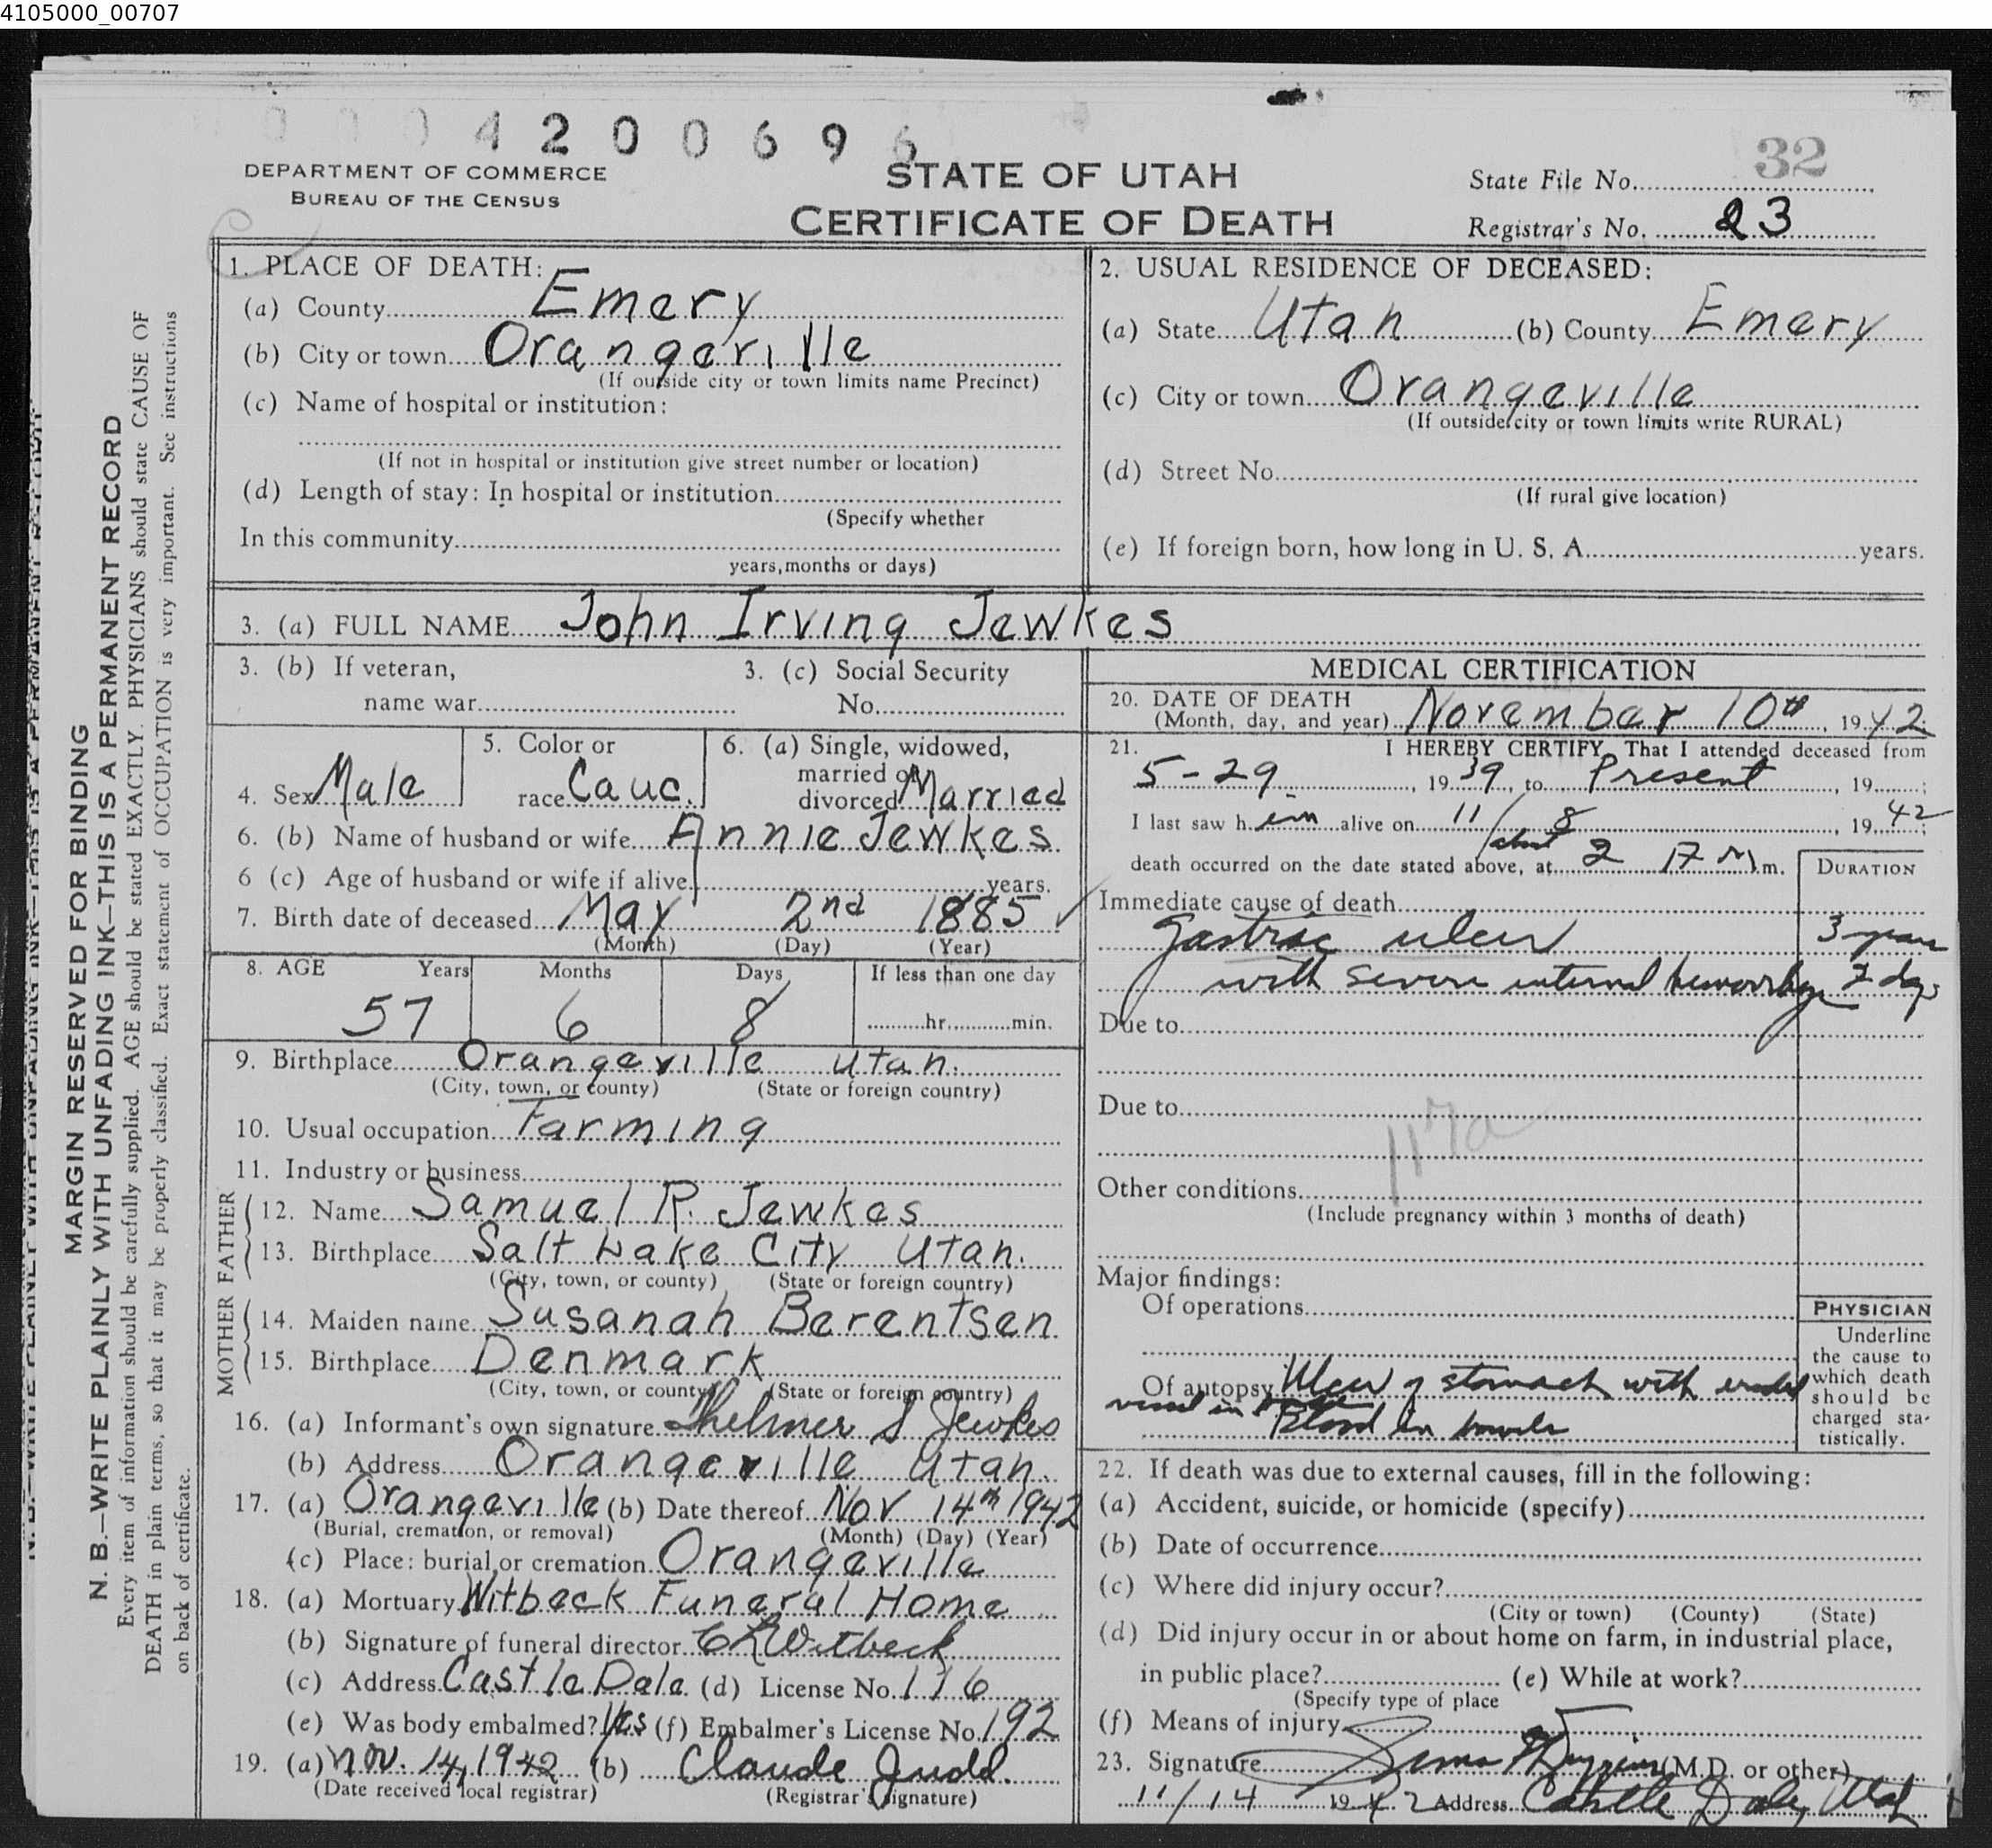 4105000_00707
0004200696
DEPARTMENT OF COMMERCE
BUREAU OF THE CENSUS
STATE OF UTAH
CERTIFICATE OF DEATH
State File No. 32
Registrar's No. 23
MARGIN RESERVED FOR BINDING
N. B.—WRITE PLAINLY WITH UNFADING INK—THIS IS A PERMANENT RECORD
Every item of information should be carefully supplied. AGE should be stated EXACTLY. PHYSICIANS should state CAUSE OF
DEATH in plain terms, so that it may be properly classified. Exact statement of OCCUPATION is very important. See instructions
on back of certificate.
1. PLACE OF DEATH:
(a) County Emery
(b) City or town Orangeville
(If outside city or town limits name Precinct)
(c) Name of hospital or institution:
(If not in hospital or institution give street number or location)
(d) Length of stay: In hospital or institution
(Specify whether
In this community
years, months or days)
2. USUAL RESIDENCE OF DECEASED:
(a) State Utah (b) County Emery
(c) City or town Orangeville
(If outside city or town limits write RURAL)
(d) Street No.
(If rural give location)
(e) If foreign born, how long in U. S. A. years.
3. (a) FULL NAME John Irving Jewkes
3. (b) If veteran,
name war
3. (c) Social Security
No.
4. Sex Male
5. Color or
race Cauc.
6. (a) Single, widowed,
married or
divorced Married
6. (b) Name of husband or wife Annie Jewkes
6 (c) Age of husband or wife if alive years.
7. Birth date of deceased May 2nd 1885
(Month) (Day) (Year)
8. AGE Years Months Days If less than one day
57 6 8 hr. min.
9. Birthplace Orangeville Utah.
(City, town, or county) (State or foreign country)
10. Usual occupation Farming
11. Industry or business
FATHER
12. Name Samuel R. Jewkes
13. Birthplace Salt Lake City Utah.
(City, town, or county) (State or foreign country)
MOTHER
14. Maiden name Susanah Berentsen
15. Birthplace Denmark
(City, town, or county) (State or foreign country)
16. (a) Informant's own signature Thelmer S Jewkes
(b) Address Orangeville Utah.
17. (a) Orangeville (b) Date thereof Nov 14th 1942
(Burial, cremation, or removal) (Month) (Day) (Year)
(c) Place: burial or cremation Orangeville
18. (a) Mortuary Witbeck Funeral Home
(b) Signature of funeral director C L Witbeck
(c) Address Castle Dale (d) License No. 116
(e) Was body embalmed? Yes (f) Embalmer's License No. 192
19. (a) Nov. 14, 1942 (b) Claude Judd.
(Date received local registrar) (Registrar's signature)
MEDICAL CERTIFICATION
20. DATE OF DEATH
(Month, day, and year) November 10th, 1942
21. I HEREBY CERTIFY, That I attended deceased from
5-29, 1939, to Present, 19
I last saw him alive on 11/8, 1942
about
death occurred on the date stated above, at 2 m.
DURATION
Immediate cause of death
Gastric ulcer 3 years
with severe internal hemorrhage 2 days
Due to
Due to
117a
Other conditions
(Include pregnancy within 3 months of death)
Major findings:
Of operations
Of autopsy Ulcer of stomach with eroded
vessel in
Blood in bowels
PHYSICIAN
Underline
the cause to
which death
should be
charged sta-
tistically.
22. If death was due to external causes, fill in the following:
(a) Accident, suicide, or homicide (specify)
(b) Date of occurrence
(c) Where did injury occur?
(City or town) (County) (State)
(d) Did injury occur in or about home on farm, in industrial place,
in public place? (e) While at work?
(Specify type of place
(f) Means of injury
23. Signature (M.D. or other)
11/14 1942 Address Castle Dale, Utah